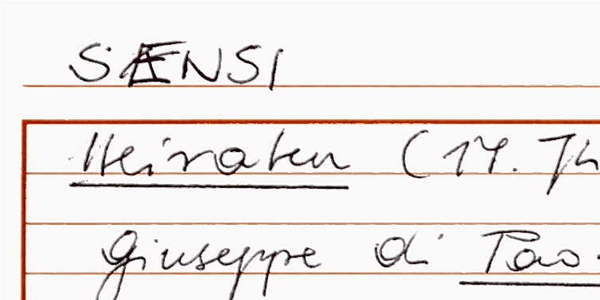 SENSI
Heiraten (17. Jh
Giuseppe di Pao-